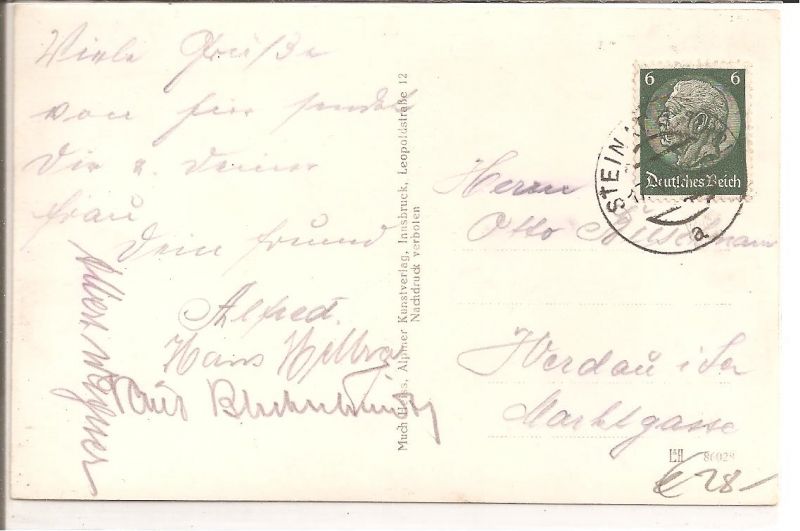 Viele Grüße
von hier sendet
Dir u. Deiner
Frau
Dein Freund
Alfred.
Hans
Albert Wagner
Much Heiss, Alpiner Kunstverlag, Innsbruck, Leopoldstraße 12
Nachdruck verboten
6 6
Deutsches Reich
STEIN
a
Herrn
Otto
Werdau i Sa
Marktgasse
86028
€ 28-